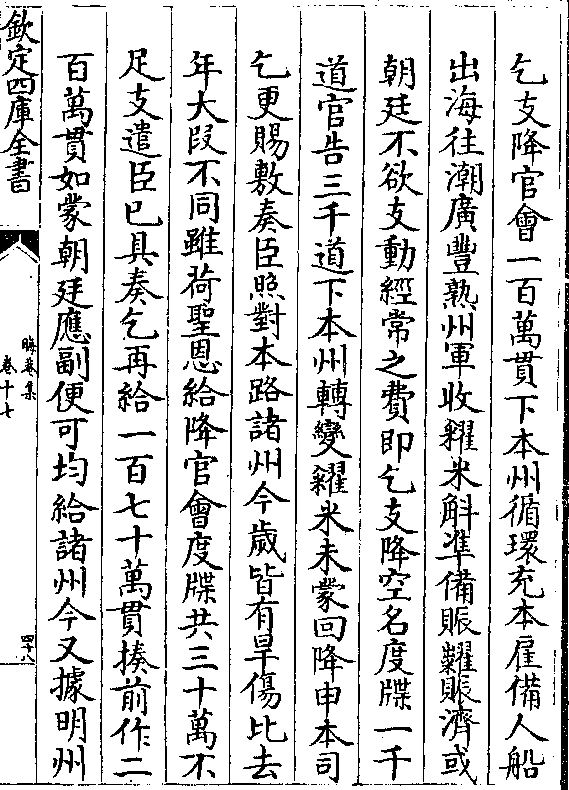 乞支降官會一百萬貫下本州循環充本雇備人船
出海往潮廣豐熟州軍收糴米斛凖備賑糶賑濟或
朝廷不欲支動經常之費即乞支降空名度牒一千
道官告三千道下本州轉變糴米未蒙回降申本司
乞更賜敷奏臣照對本路諸州今歲皆有旱傷比去
年大段不同雖荷聖恩給降官會度牒共三十萬不
足支遣臣已具奏乞再給一百七十萬貫揍前作二
百萬貫如蒙朝廷應副便可均給諸州今又據明州
欽定四庫全書
晦菴集
卷十七
四十八